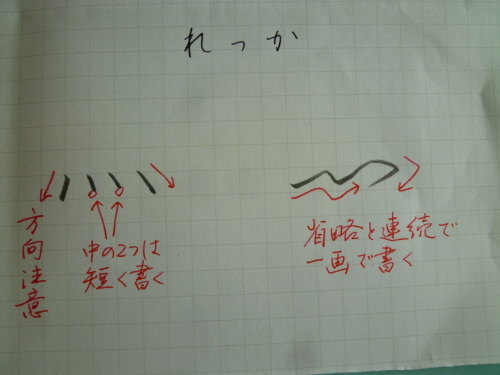 れっか
方向注意
中の2つは
短く書く
省略と連続で
一画で書く